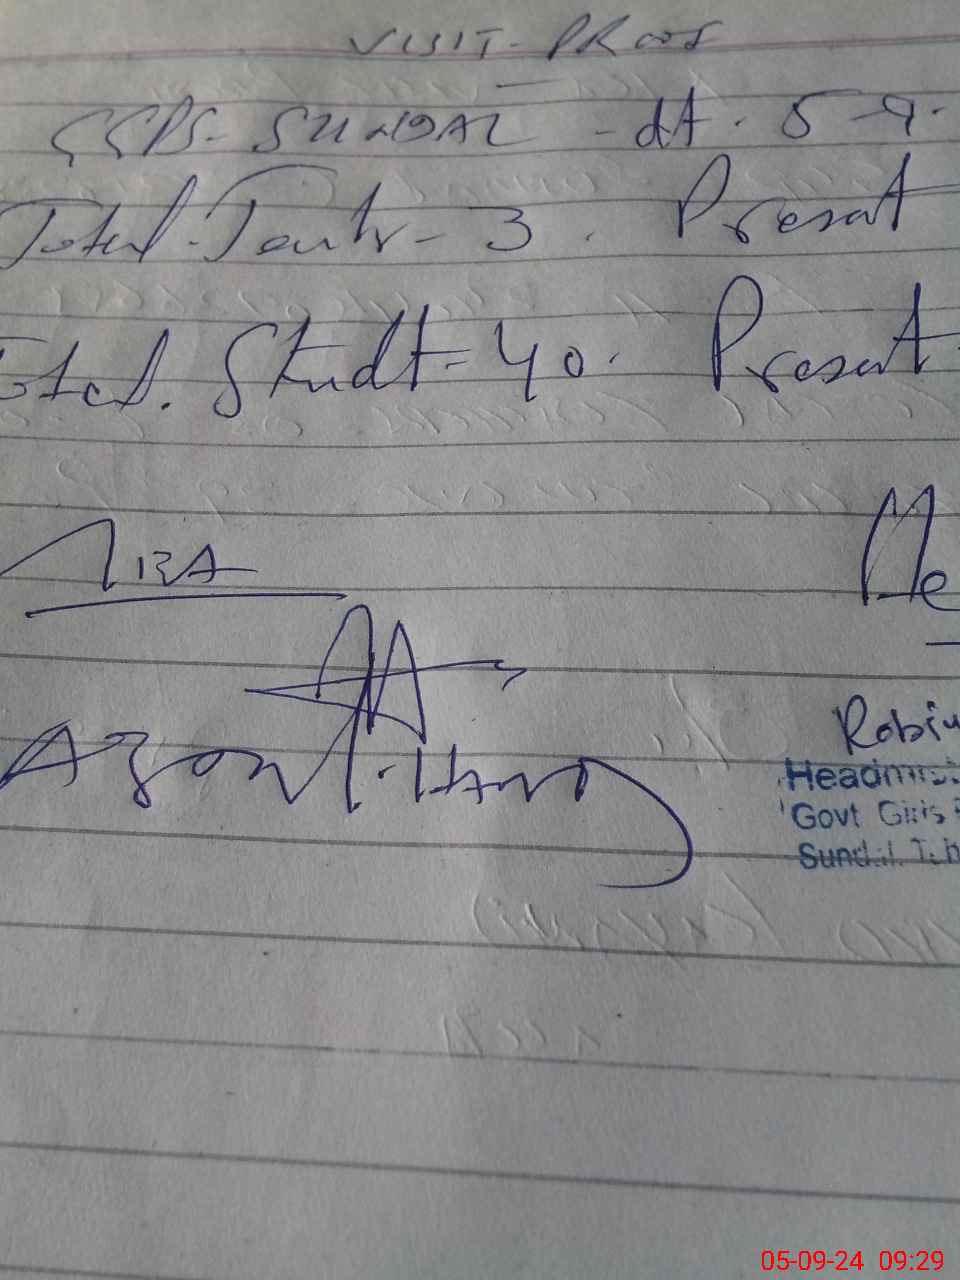 VISIT - PROOF
GGPS - SUNDAL - dt. 5-9.
Total. Teachr - 3. Present
Total. Studt = 40. Present
Me
Robiu
Headmist
Govt Girls P
Sundal. Teh
05-09-24 09:29